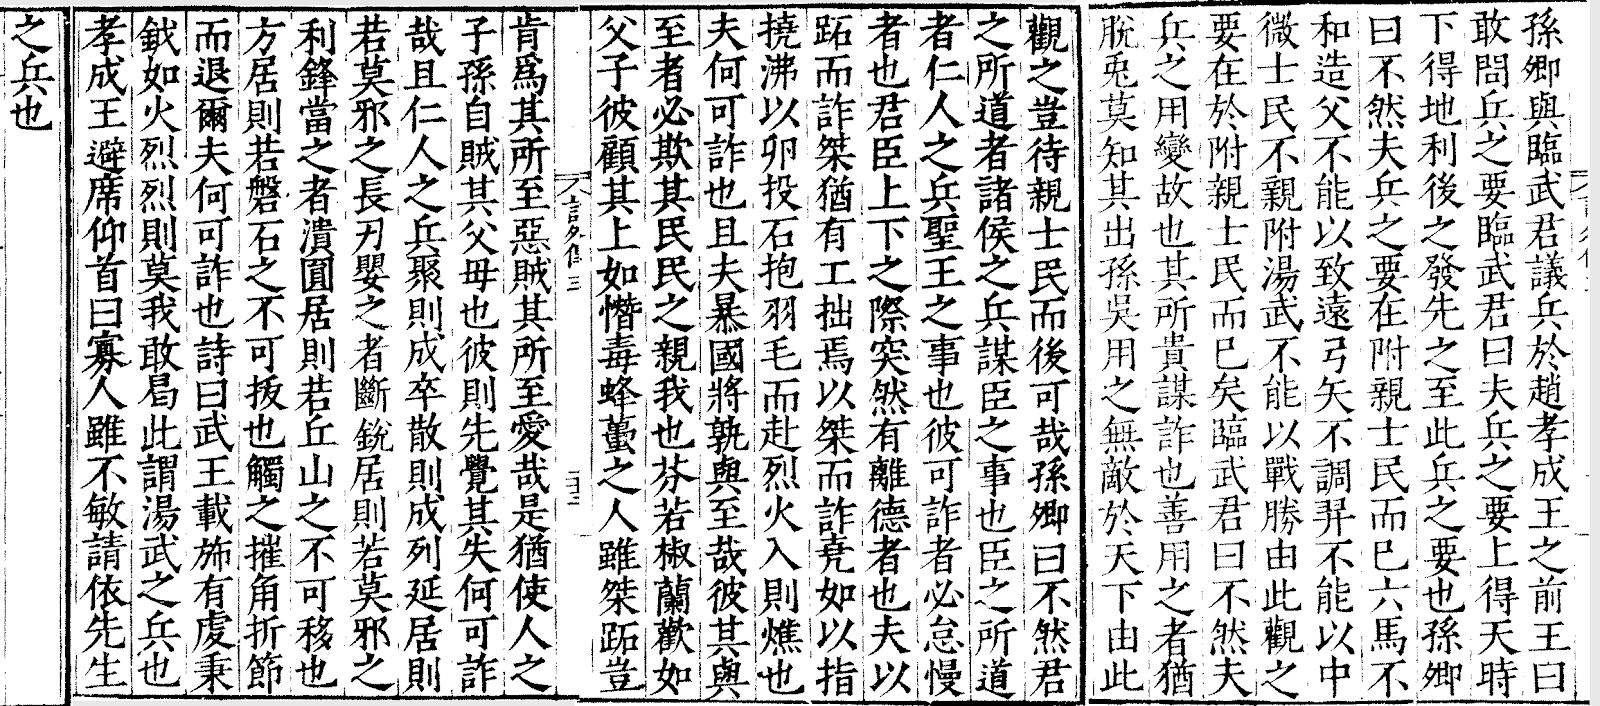 孫卿與臨武君議兵於趙孝成王之前王曰
敢問兵之要臨武君曰夫兵之要上得天時
下得地利後之發先之至此兵之要也孫卿
曰不然夫兵之要在附親士民而已六馬不
和造父不能以致遠弓矢不調羿不能以中
微士民不親附湯武不能以戰勝由此觀之
要在於附親士民而已矣臨武君曰不然夫
兵之用變故也其所貴謀詐也善用之者猶
脫兎莫知其出孫吳用之無敵於天下由此
觀之豈待親士民而後可哉孫卿曰不然君
之所道者諸侯之兵謀臣之事也臣之所道
者仁人之兵聖王之事也彼可詐者必怠慢
者也君臣上下之際突然有離德者也夫以
跖而詐桀猶有工拙焉以桀而詐堯如以指
撓沸以卵投石抱羽毛而赴烈火入則燋也
夫何可詐也且夫暴國將孰與至哉彼其與
至者必欺其民民之親我也芬若椒蘭歡如
父子彼顧其上如憯毒蜂蠆之人雖桀跖豈
肯爲其所至惡賊其所至愛哉是猶使人之
子孫自賊其父母也彼則先覺其失何可詐
哉且仁人之兵聚則成卒散則成列延居則
若莫邪之長刃嬰之者斷銳居則若莫邪之
利鋒當之者潰圓居則若丘山之不可移也
方居則若磐石之不可拔也觸之摧角折節
而退爾夫何可詐也詩曰武王載斾有虔秉
鉞如火烈烈則莫我敢曷此謂湯武之兵也
孝成王避席仰首曰寡人雖不敏請依先生
之兵也